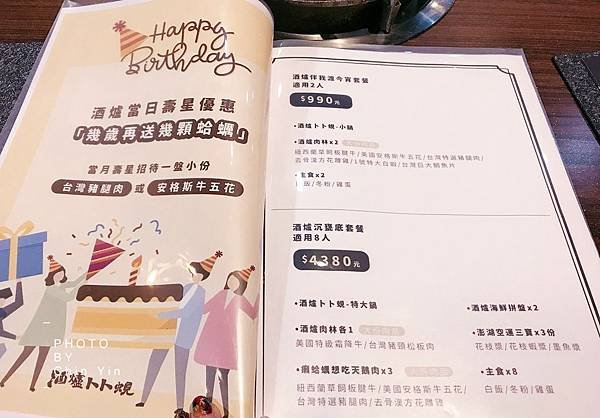 Happy
Birthday
酒爐當日壽星優惠
「幾歲再送幾顆蛤蠣」
當月壽星招待一盤小份
台灣豬腿肉 或 安格斯牛五花
PHOTO
BY
Chin Yin
酒爐卜卜蜆
酒爐伴我渡今宵套餐
適用2人
$990元
•酒爐卜卜蜆-小鍋
•酒爐肉林x2
紐西蘭草飼板腱牛/美國安格斯牛五花/台灣特選豬腿肉/
去骨漢方花雕雞/1號特大白蝦/台灣巨大鯛魚片
•主食x2
白飯/冬粉/雞蛋
酒爐沉甕底套餐
適用8人
$4380元
•酒爐卜卜蜆-特大鍋
•酒爐肉林各1
美國特級霜降牛/台灣豬頸松板肉
•癩蛤蠣想吃天鵝肉x3
紐西蘭草飼板腱牛/美國安格斯牛五花/
台灣特選豬腿肉/去骨漢方花雕雞
•酒爐海鮮拼盤x2
•澎湖空運三寶x3份
花枝漿/花枝蝦漿/墨魚漿
•主食x8
白飯/冬粉/雞蛋